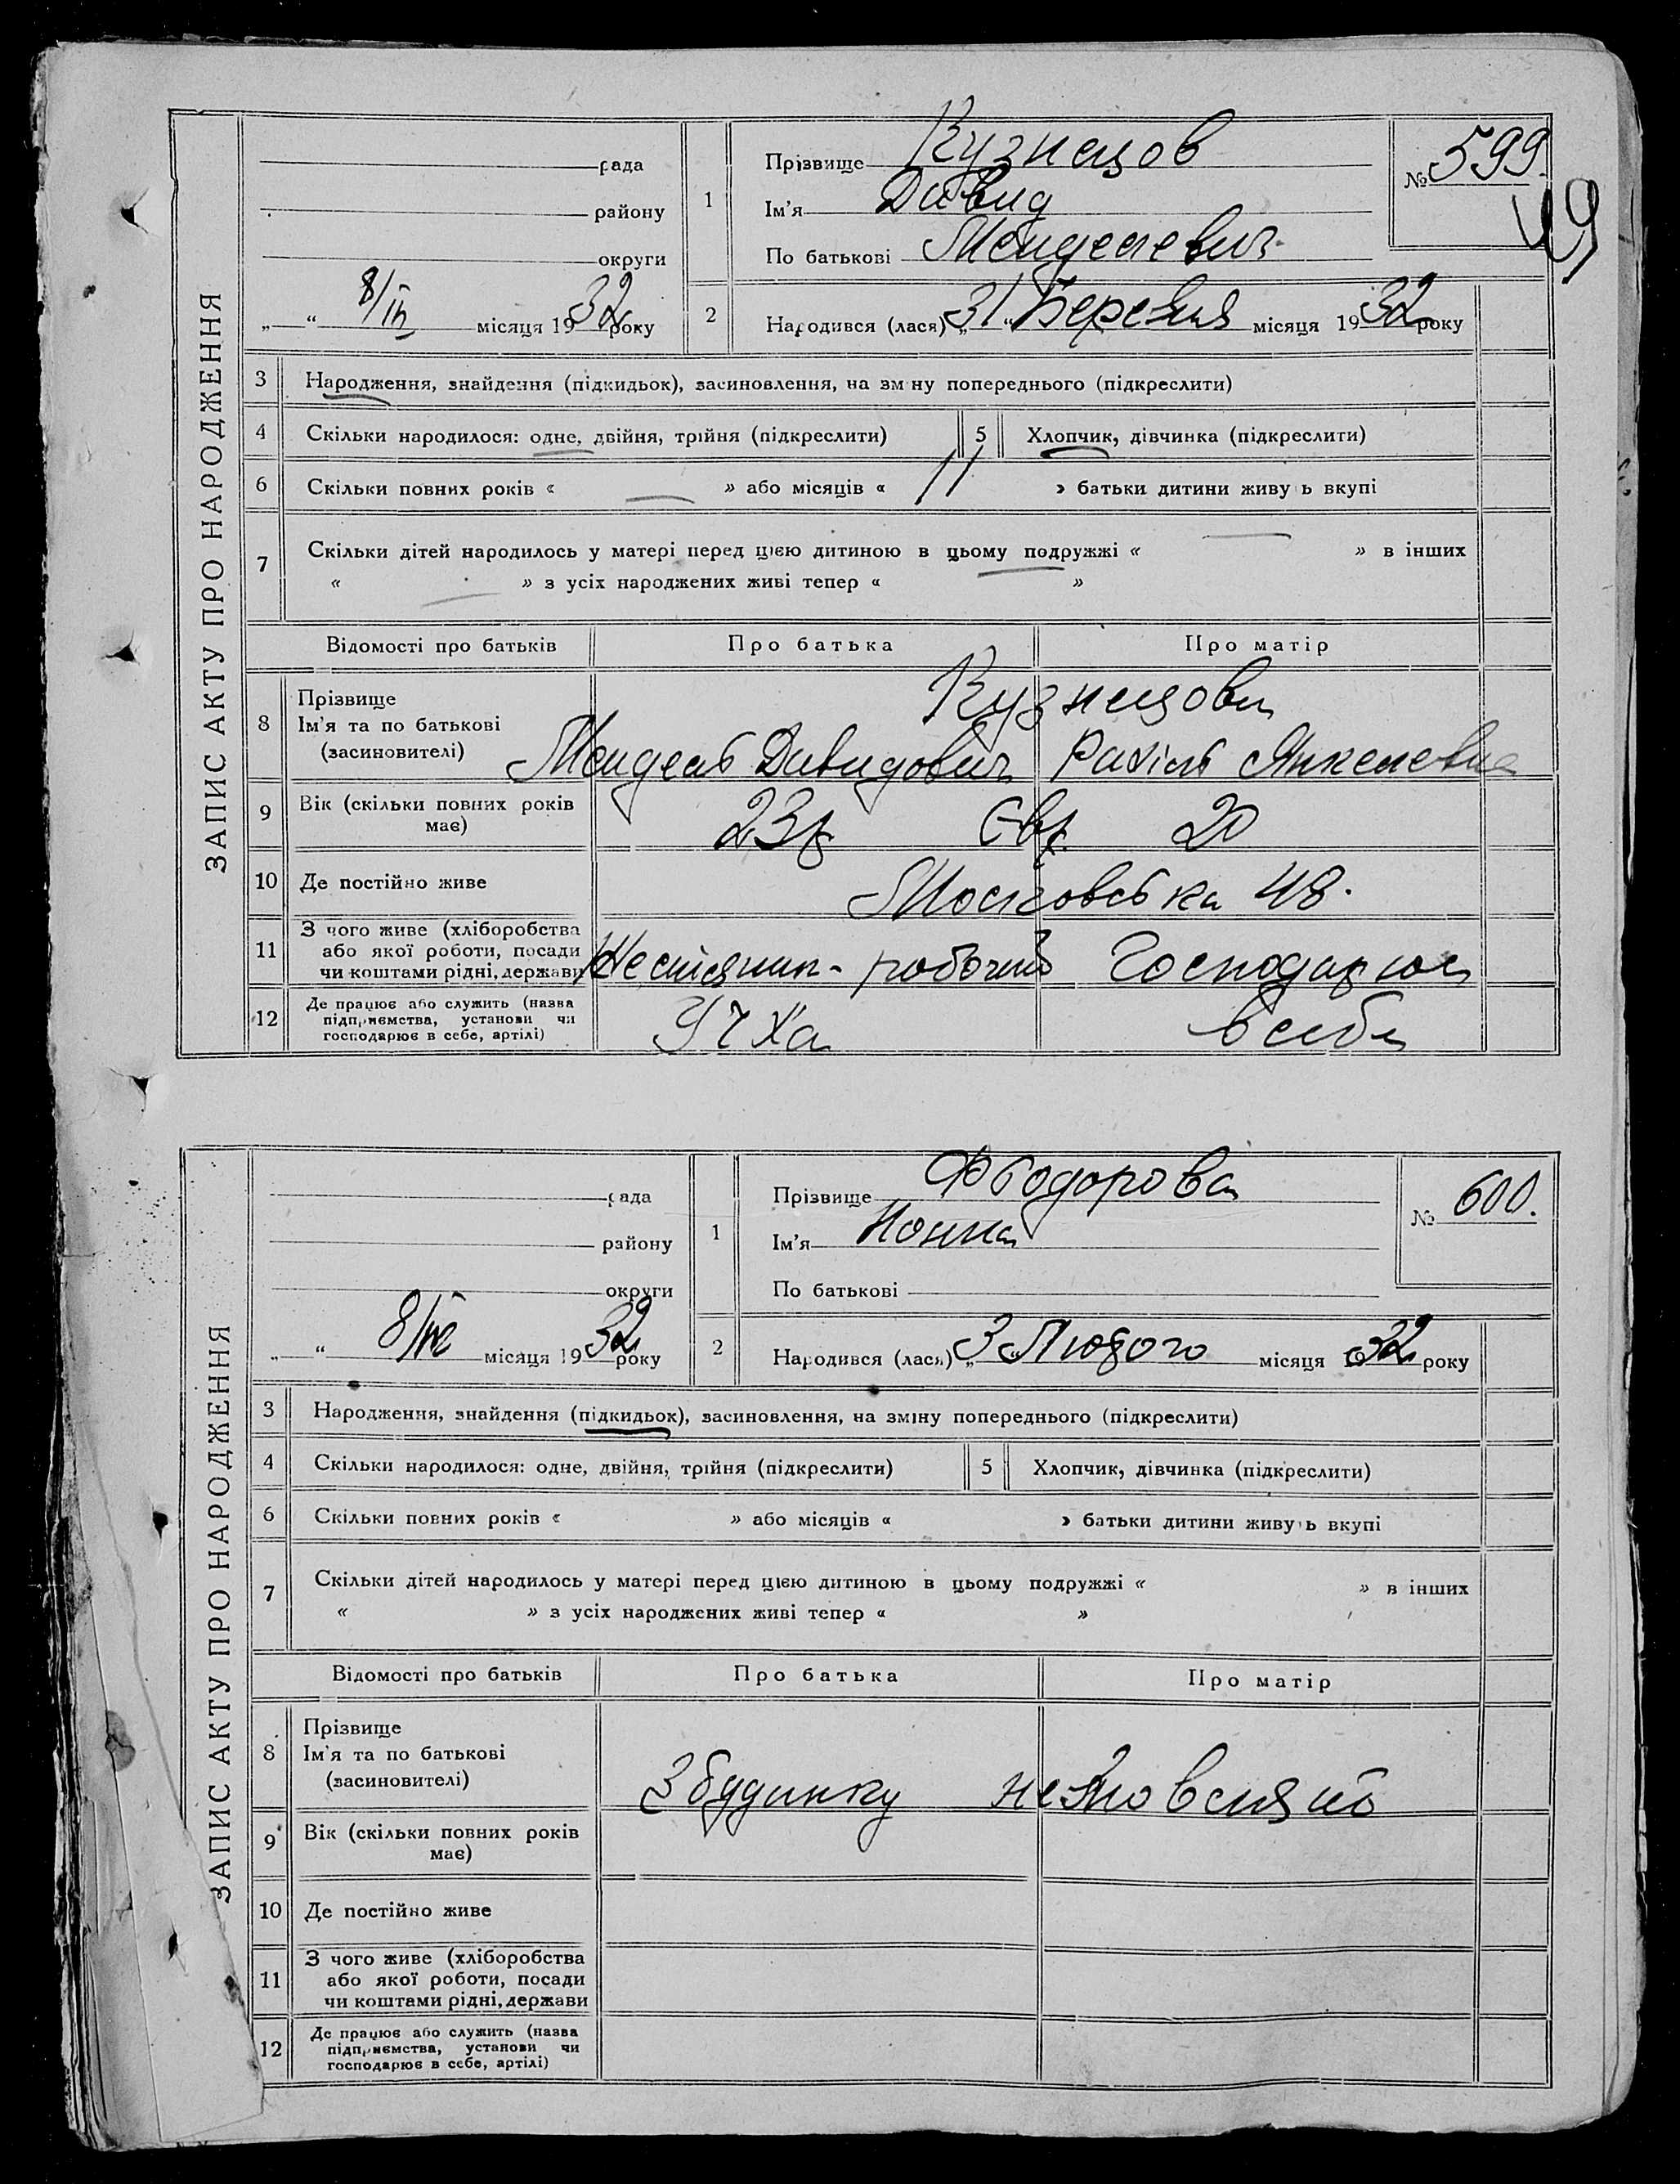 ЗАПИС АКТУ ПРО НАРОДЖЕННЯ
рада
району
округи
8/III місяця 1932 року
1
Прізвище Кузнецов
Ім'я Давид
По батькові Менделевич
№ 599.
2
Народився (лася) „31“ Березня місяця 1932 року
3 Народження, знайдення (підкидьок), засиновлення, на зміну попереднього (підкреслити)
4 Скільки народилося: одне, двійня, трійня (підкреслити)
5 Хлопчик, дівчинка (підкреслити)
6 Скільки повних років « — » або місяців « 11 » батьки дитини живуть вкупі
7 Скільки дітей народилось у матері перед цією дитиною в цьому подружжі « — » в інших
« — » з усіх народжених живі тепер « »
Відомості про батьків Про батька Про матір
8 Прізвище
Ім'я та по батькові
(засиновителі)
Кузнецови
Мендель Давидович Рахіль Янкелевна
9 Вік (скільки повних років має)
23р Євр. 20
10 Де постійно живе
Московська 48.
11 З чого живе (хліборобства
або якої роботи, посади
чи коштами рідні, держави)
робочий Господарює
12 Де працює або служить (назва
підприємства, установи чи
господарює в себе, артілі)
в себе
ЗАПИС АКТУ ПРО НАРОДЖЕННЯ
рада
району
округи
8/III місяця 1932 року
1
Прізвище Фьодорова
Ім'я Нонна
По батькові
№ 600.
2
Народився (лася) „3“ Лютого місяця 1932 року
3 Народження, знайдення (підкидьок), засиновлення, на зміну попереднього (підкреслити)
4 Скільки народилося: одне, двійня, трійня (підкреслити)
5 Хлопчик, дівчинка (підкреслити)
6 Скільки повних років « » або місяців « » батьки дитини живуть вкупі
7 Скільки дітей народилось у матері перед цією дитиною в цьому подружжі « » в інших
« » з усіх народжених живі тепер « »
Відомості про батьків Про батька Про матір
8 Прізвище
Ім'я та по батькові
(засиновителі)
З будинку немовлят
9 Вік (скільки повних років має)
10 Де постійно живе
11 З чого живе (хліборобства
або якої роботи, посади
чи коштами рідні, держави
12 Де працює або служить (назва
підприємства, установи чи
господарює в себе, артілі)